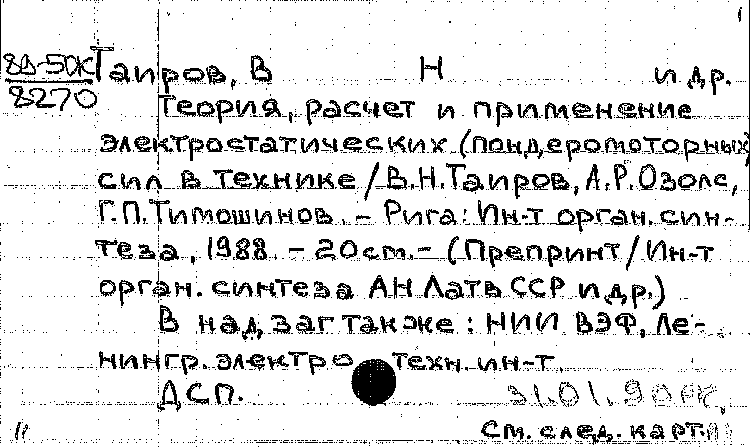 8Д-50К Таиров, В Н и др.
8270 Теория, расчет и применение
электростатических (пондеромоторных)
сил в технике / В.Н.Таиров, А.Р.Озолс,
Г.П.Тимошинов. - Рига: Ин-т орган. син-
теза, 1988. - 20 см. - (Препринт / Ин-т
орган. синтеза АН Латв ССР и др.)
В надзаг также: НИИ ВЭФ, Ле-
нингр. электротехн. ин-т.
ДСП. 31.01.90
См. след. карт.